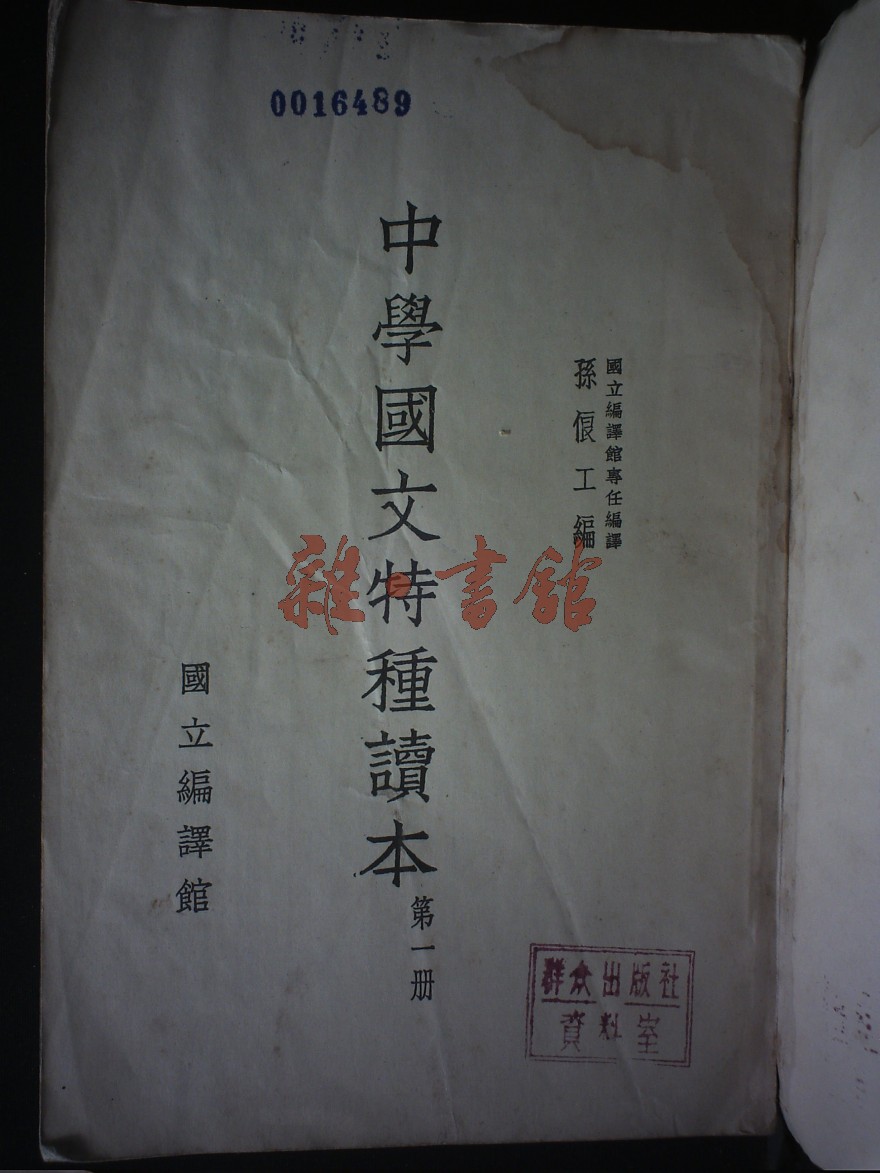 0016489
國立編譯館專任編譯
孫俍工編
中學國文特種讀本
第一册
國立編譯館
雜書館
群众出版社
資料室